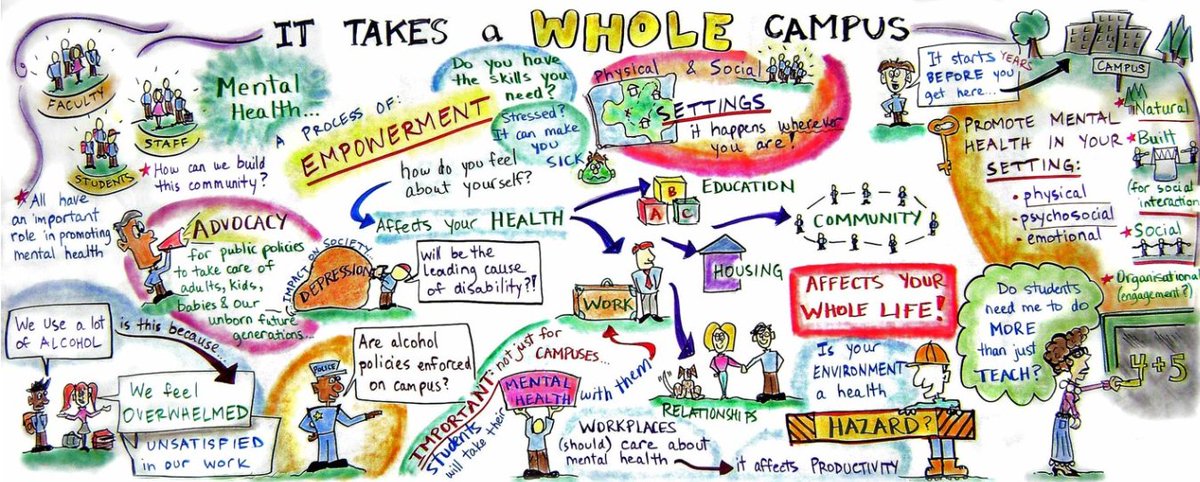 IT TAKES a WHOLE CAMPUS
FACULTY
STAFF
STUDENTS
Mental
Health...
★ How can we build
this community?
★ All have
an important
role in promoting
mental health
A PROCESS OF:
EMPOWERMENT
Do you have
the skills you
need?
Stressed?
It can make
you
SICK
how do you feel
about yourself?
Physical & Social
SETTINGS
it happens wherever
you are!
It starts YEARS
BEFORE you
get here...
CAMPUS
PROMOTE MENTAL
HEALTH IN YOUR
SETTING:
• physical
• psychosocial
• emotional
★ Natural
★ Built
(for social
interaction)
★ Social
★ Organisational
(engagement?)
ADVOCACY
for public policies
to take care of
adults, kids,
babies & our
unborn future
generations...
Affects your HEALTH
IMPACT ON SOCIETY...
DEPRESSION
will be the
leading cause
of disability?!
B
A C
EDUCATION
COMMUNITY
HOUSING
WORK
RELATIONSHIPS
AFFECTS YOUR
WHOLE LIFE!
We use a lot
of ALCOHOL
is this because...
We feel
OVERWHELMED
UNSATISFIED
in our work
POLICE
Are alcohol
policies enforced
on campus?
IMPORTANT: not just for
CAMPUSES...
students
will take their
MENTAL
HEALTH
with them
WORKPLACES
(should) care about
mental health
it affects PRODUCTIVITY
Is your
ENVIRONMENT
a health
HAZARD?
Do students
need me to do
MORE
than just
TEACH?
4+5